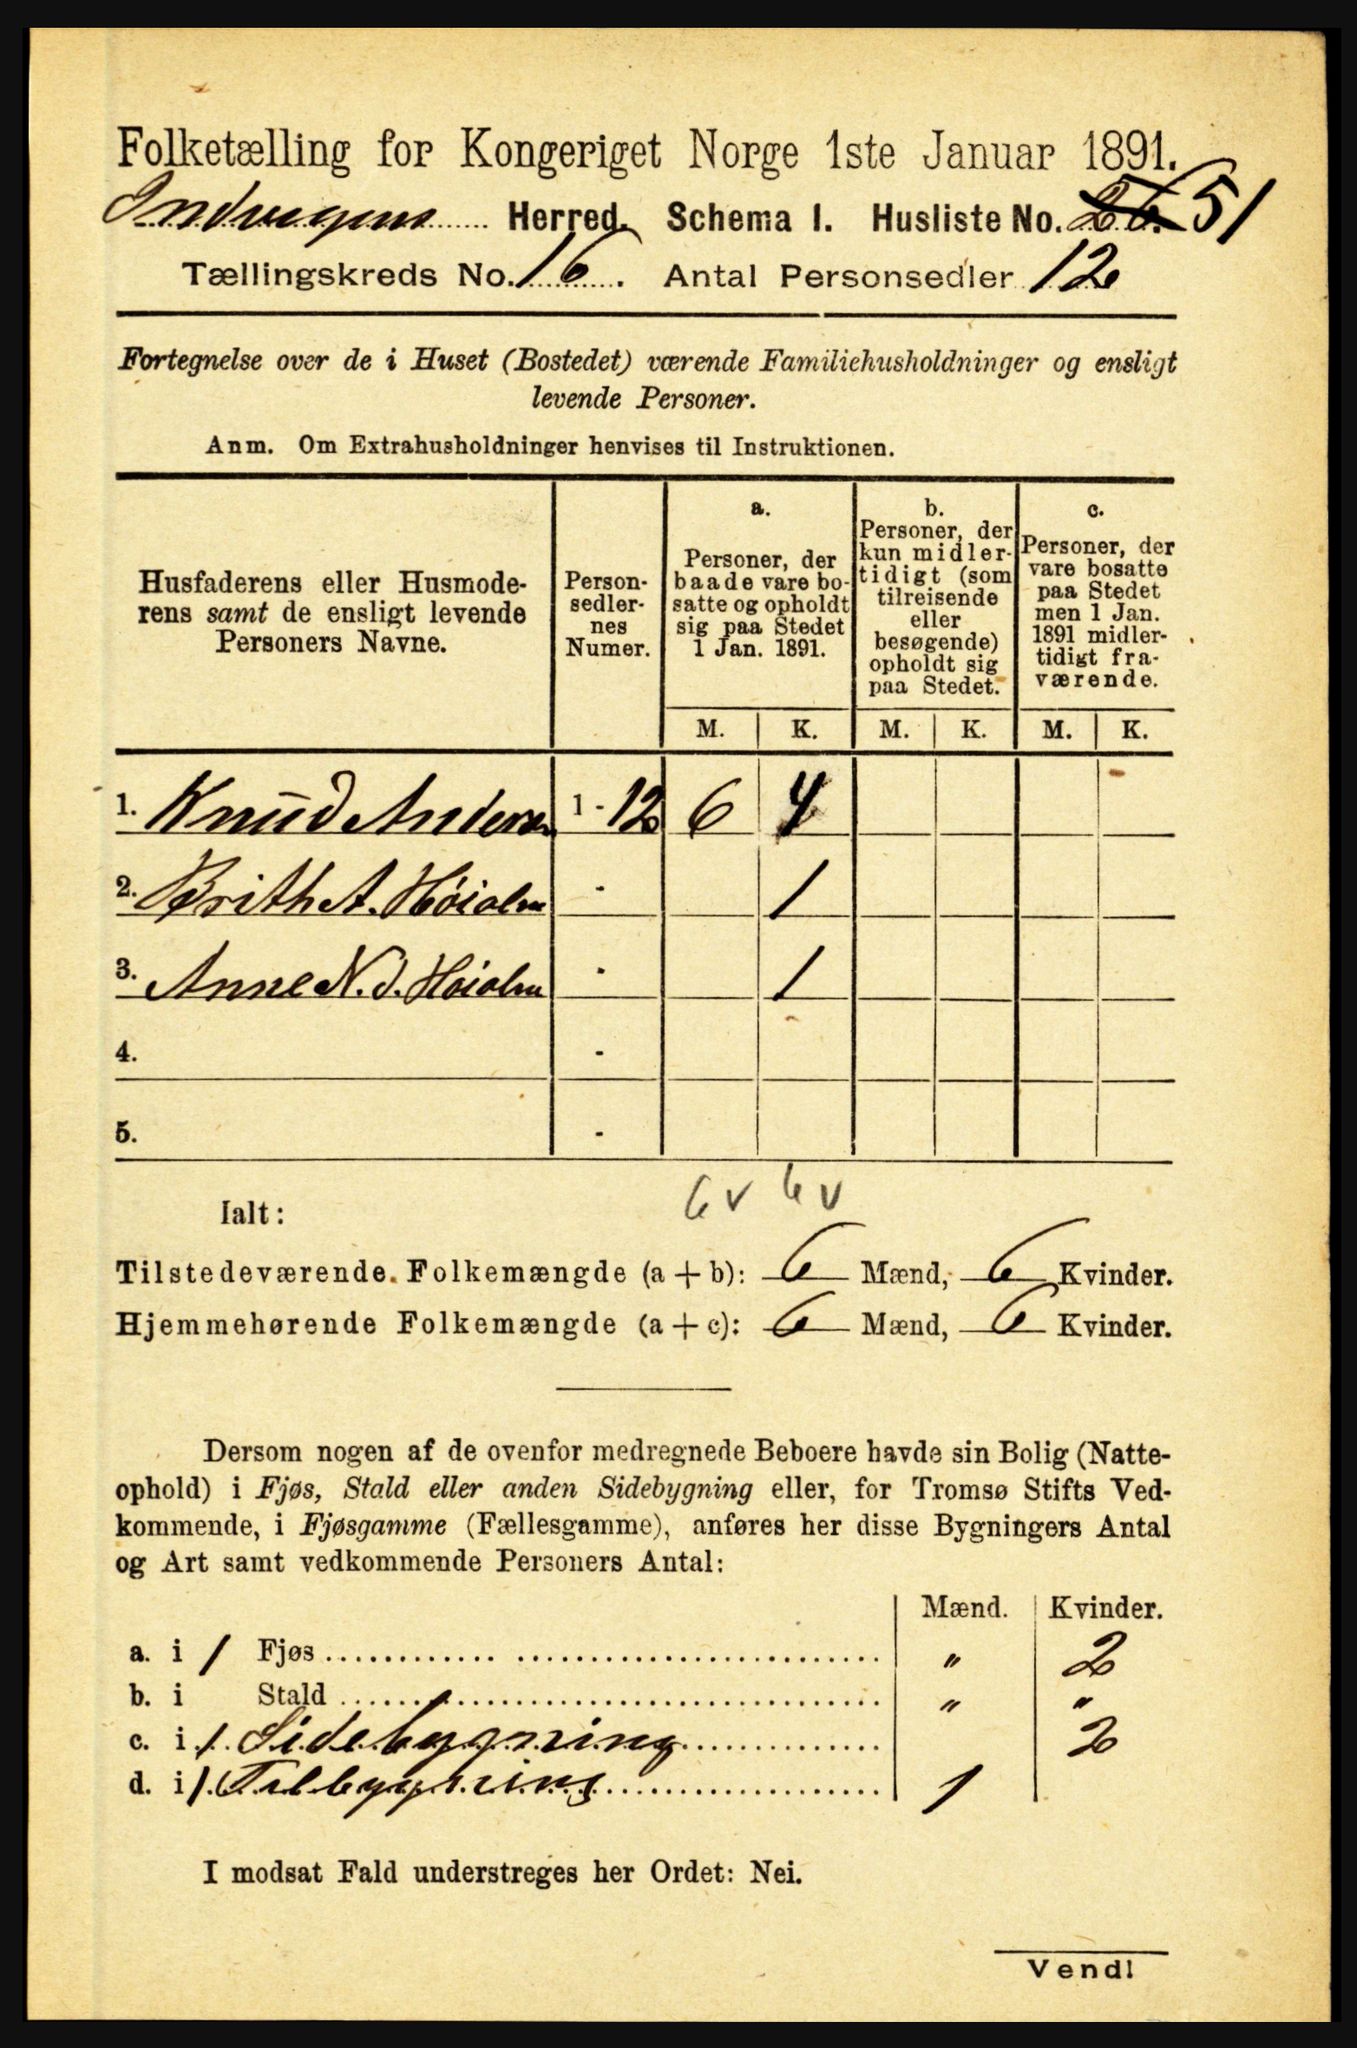 Folketælling for Kongeriget Norge 1ste Januar 1891.
Indvigens Herred. Schema I. Husliste No. 26. 51
Tællingskreds No. 16. Antal Personsedler 12
Fortegnelse over de i Huset (Bostedet) værende Familiehusholdninger og ensligt
levende Personer.
Anm. Om Extrahusholdninger henvises til Instruktionen.
Husfaderens eller Husmode-
rens samt de ensligt levende
Personers Navne.
Person-
sedler-
nes
Numer.
a.
Personer, der
baade vare bo-
satte og opholdt
sig paa Stedet
1 Jan. 1891.
b.
Personer, der
kun midler-
tidigt (som
tilreisende
eller
besøgende)
opholdt sig
paa Stedet.
c.
Personer, der
vare bosatte
paa Stedet
men 1 Jan.
1891 midler-
tidigt fra-
værende.
M. K. M. K. M. K.
1. Knud Andersen 1 - 12 6 4
2. Brith A. Høialm - 1
3. Anne N. d. Høialm - 1
4. -
5. -
6 v 6 v
Ialt:
Tilstedeværende Folkemængde (a + b): 6 Mænd, 6 Kvinder.
Hjemmehørende Folkemængde (a + c): 6 Mænd, 6 Kvinder.
Dersom nogen af de ovenfor medregnede Beboere havde sin Bolig (Natte-
ophold) i Fjøs, Stald eller anden Sidebygning eller, for Tromsø Stifts Ved-
kommende, i Fjøsgamme (Fællesgamme), anføres her disse Bygningers Antal
og Art samt vedkommende Personers Antal:
Mænd. Kvinder.
a. i 1 Fjøs " 2
b. i Stald " "
c. i 1 Sidebygning 2
d. i 1 Tilbygning 1
I modsat Fald understreges her Ordet: Nei.
Vend!